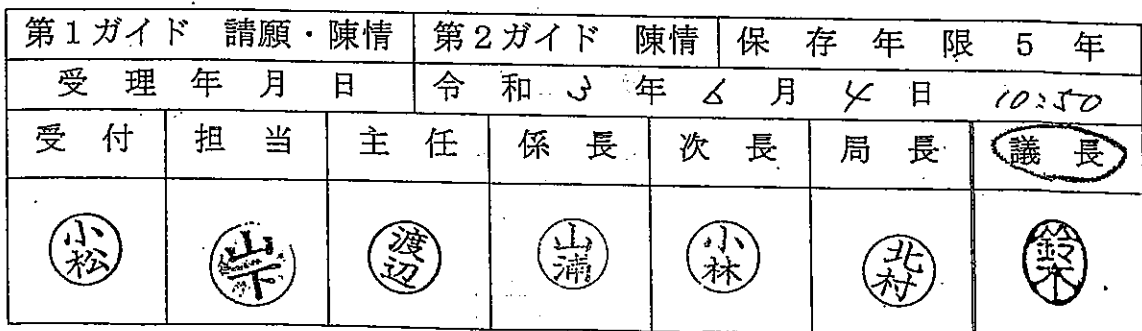 第1ガイド 請願・陳情 第2ガイド 陳情 保存年限5年
受理年月日 令和3年6月4日 10:50
受付 担当 主任 係長 次長 局長 議長
小松 山下 渡辺 山浦 小林 北村 鈴木